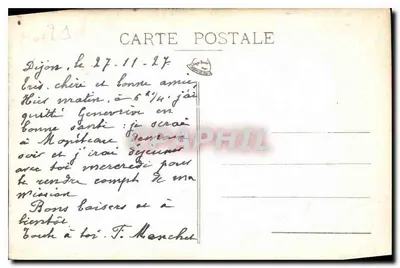 CARTE POSTALE
Dijon, le 27-11-27
très chère et bonne amie,
Hier matin, à 6h 1/4 j'ai
quitté Geneviève en
bonne santé : je serai
à Monéteau
soir et j'irai déjeuner
avec toi mercredi pour
te rendre compte de ma
mission
Bons baisers et à
bientôt
Toute à toi. T. Manchet